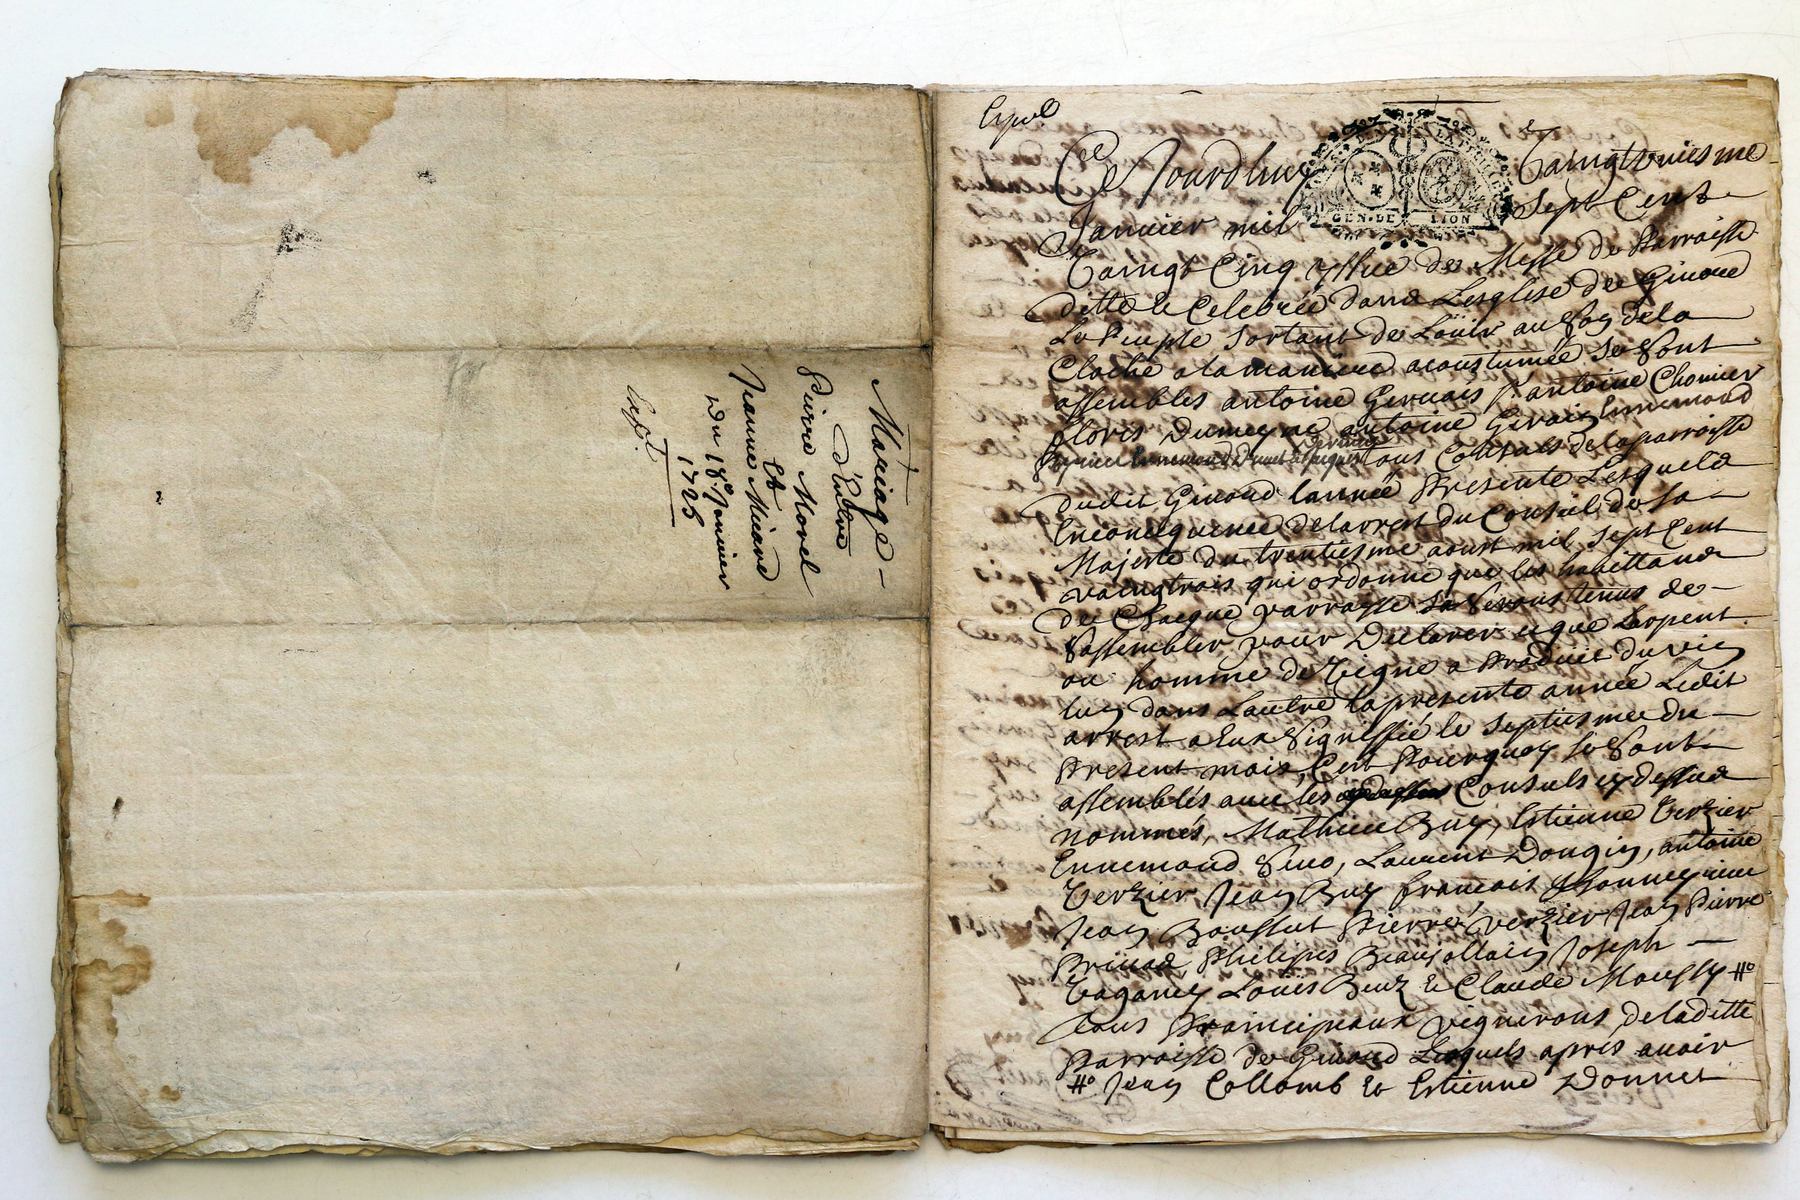 Mariage
d'Entre
Pierre Morel
Et
Jeanne Micard
Du 18e Janvier
1725
Expt.
Ce Jourdhuy Vaingtuniesme
GEN·DE LION
Janvier mil Sept Cent
Vaingt Cinq yssue de Messe de Parroisse
ditte et Celebrée dans Lesglise de Givord
Le Peuple Sortant de Louir au Son dela
Cloche a la maniere acoustumée Se Sont
assemblés antoine Gervais antoine Chomier
antoine Gervais Ennemond
tous Consuls de la parroisse
dudit Givord lannée Presente Lesquels
Enconcequence de larrest du Conseil de Sa
Majesté du trentiesme aoust mil Sept Cent
vaingtrois qui ordonne que les habittans
de Chaque parroysse Se Seront tenus de
Sassembler pour Declarer ce que Larpent
ou homme de Vigne a Produit du vin
lun dans Lautre la presente année Ledit
arrest a Eux Signiffié le Septiesme du
Present mois, Cest Pourquoy Se Sont
assemblés avec les Consuls cy dessus
nommés, Mathieu Buy, Estienne Verzier
Ennemond, Laurent Dongin, antoine
Verzier Jean Buy francois
Jean Pierre Verzier Jean Pierre
Privas Philipes Beaujollain Joseph
Louis & Claude Moussy #o
tous Praincipeaux vignerons de laditte
Parroisse de Givord Lesquels apres avoir
#o Jean Collomb & Estienne Donnet